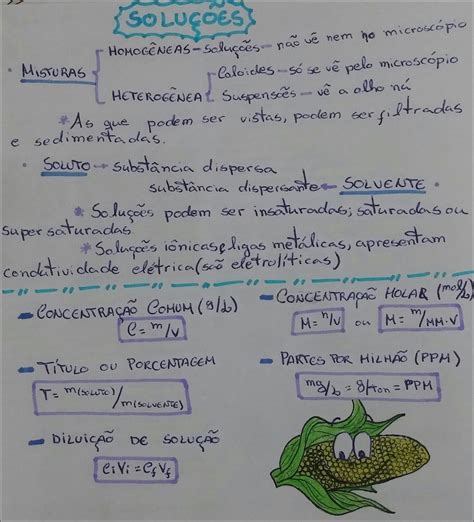 SOLUÇÕES
• MISTURAS
HOMOGÊNEAS - Soluções - não vê nem no microscópio
HETEROGÊNEA
Coloides - só se vê pelo microscópio
Suspensões - vê a olho nú
* As que podem ser vistas, podem ser filtradas
e sedimentadas.
• SOLUTO → substância dispersa
substância dispersante ← SOLVENTE •
* Soluções podem ser insaturadas, saturadas ou
supersaturadas.
* Soluções iônicas, e ligas metálicas, apresentam
condutividade elétrica (são eletrolíticas)
- CONCENTRAÇÃO COMUM (g/L)
C = m/V
- CONCENTRAÇÃO MOLAR (mol/L)
M = n/V ou M = m/MM.V
- TÍTULO OU PORCENTAGEM
T = m(SOLUTO)/m(SOLVENTE)
- PARTES POR MILHÃO (PPM)
mg/L = g/ton = PPM
- DILUIÇÃO DE SOLUÇÃO
CiVi = CfVf